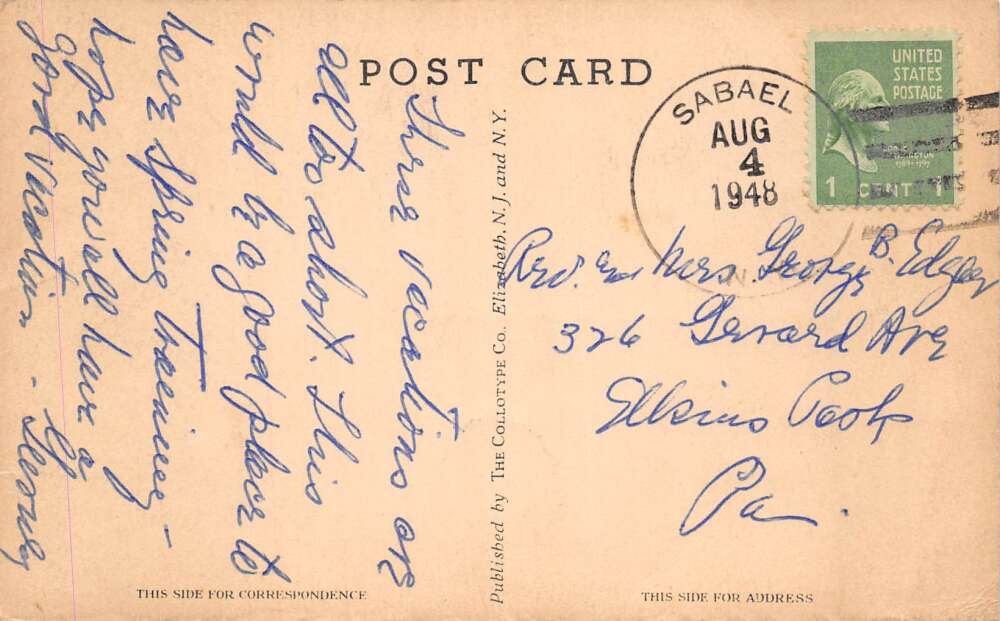 POST CARD
These vacations are
all too short. This
would be a good place to
have Spring Training -
hope you all have a
good vacation -
SABAEL
AUG
4
1948
N.Y.
UNITED
STATES
POSTAGE
1 CENT 1
Rev. and Mrs. George B. Edgar
326 Gerard Ave
Elkins Park
Pa.
Published by THE COLLOTYPE CO., Elizabeth, N. J. and N. Y.
THIS SIDE FOR CORRESPONDENCE
THIS SIDE FOR ADDRESS